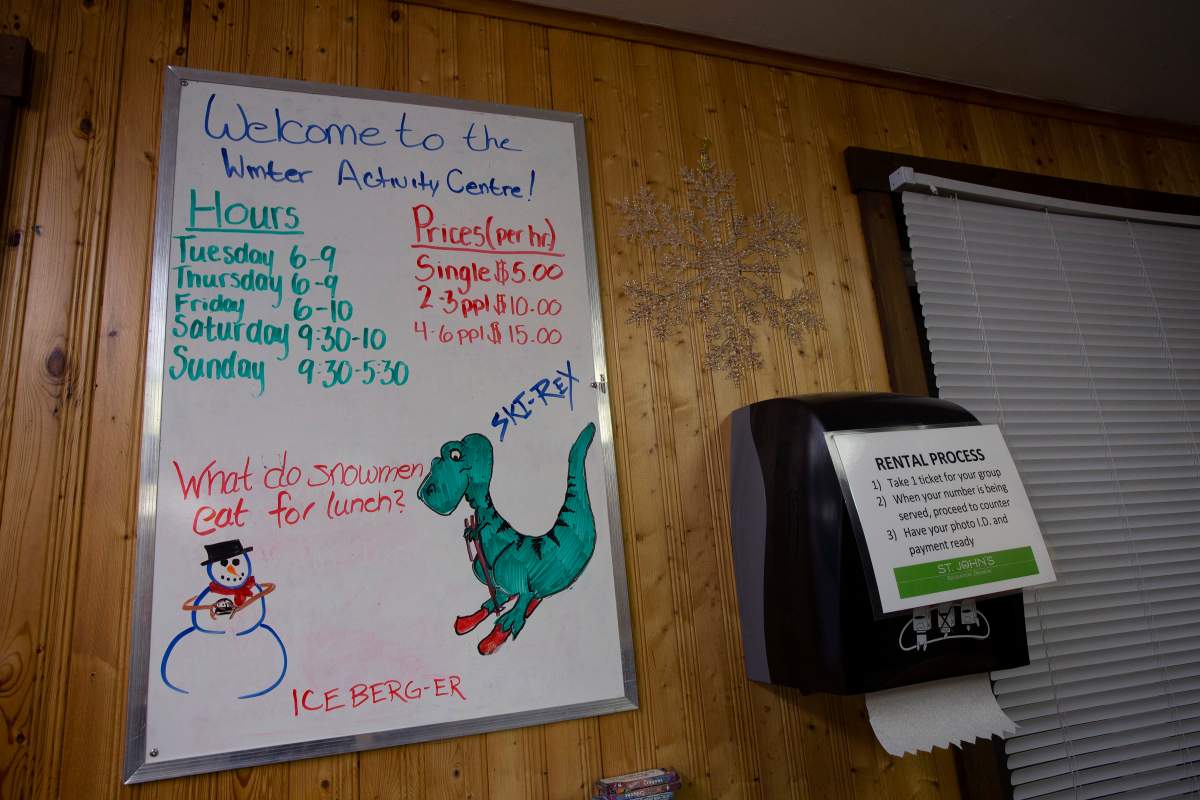 Welcome to the
Winter Activity Centre!
Hours
Tuesday 6-9
Thursday 6-9
Friday 6-10
Saturday 9:30-10
Sunday 9:30-5:30
Prices (per hr)
Single $5.00
2-3 ppl $10.00
4-6 ppl $15.00
SKI-REX
What do snowmen
eat for lunch?
ICEBERG-ER
RENTAL PROCESS
1) Take 1 ticket for your group
2) When your number is being
served, proceed to counter
3) Have your photo I.D. and
payment ready
ST. JOHN'S